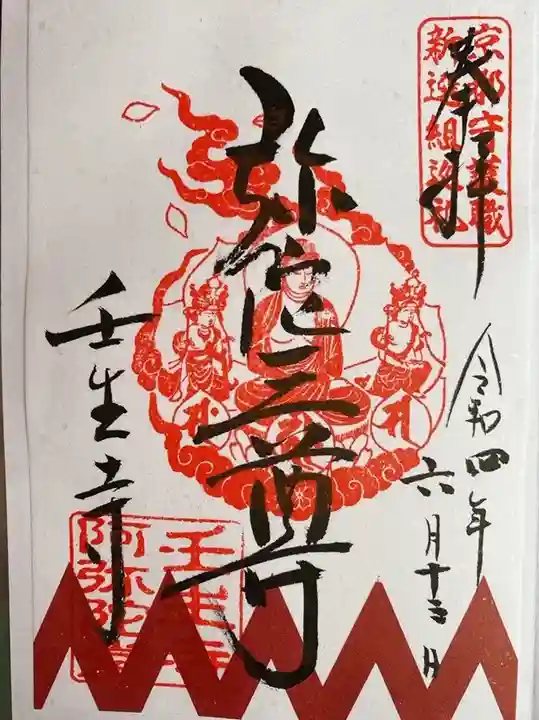 奉拝
京都守護職
新選組
令和四年
六月十三日
弥陀三尊
壬生寺
壬生寺
阿弥陀